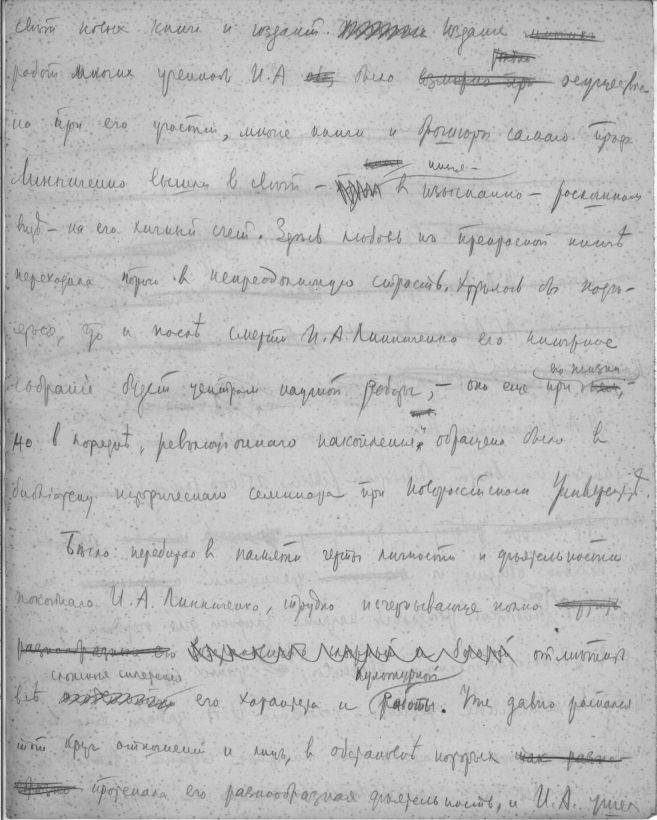 свѣт новых книг и изданій. Изданіе
работ многих учеников И.А было осуществле
но при его участіи, многіе книги и брошюры самого проф
Линниченко вышли в свѣт — в изысканно — роскошном
видѣ — на его личный счет. Здѣсь любовь къ прекрасной книгѣ
переходила прямо в непреодолимую страсть.
что и послѣ смерти И.А. Линниченко его книжное
собраніе будет центром научной работы, — оно еще при его жизни,
в порядкѣ, революціоннаго накопленія, обращено было в
библіотеку историческаго семинара при Новороссійском Университетѣ.
Бѣгло перебирая в памяти черты личности и дѣятельности
покойнаго И.А. Линниченко, трудно исчерпывающе полно
отмѣтить
всѣ его характера и культурной работы. Уже давно распался
тот круг отношеній и лиц, в обстановкѣ которых
протекала его разнообразная дѣятельность, и И.А. ушел